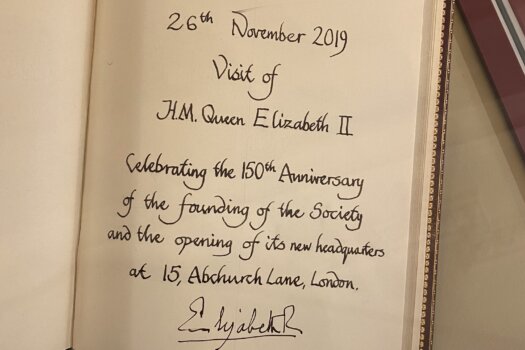 26th November 2019
Visit of
H.M. Queen Elizabeth II
Celebrating the 150th Anniversary
of the founding of the Society
and the opening of its new headquarters
at 15, Abchurch Lane, London.
Elizabeth R